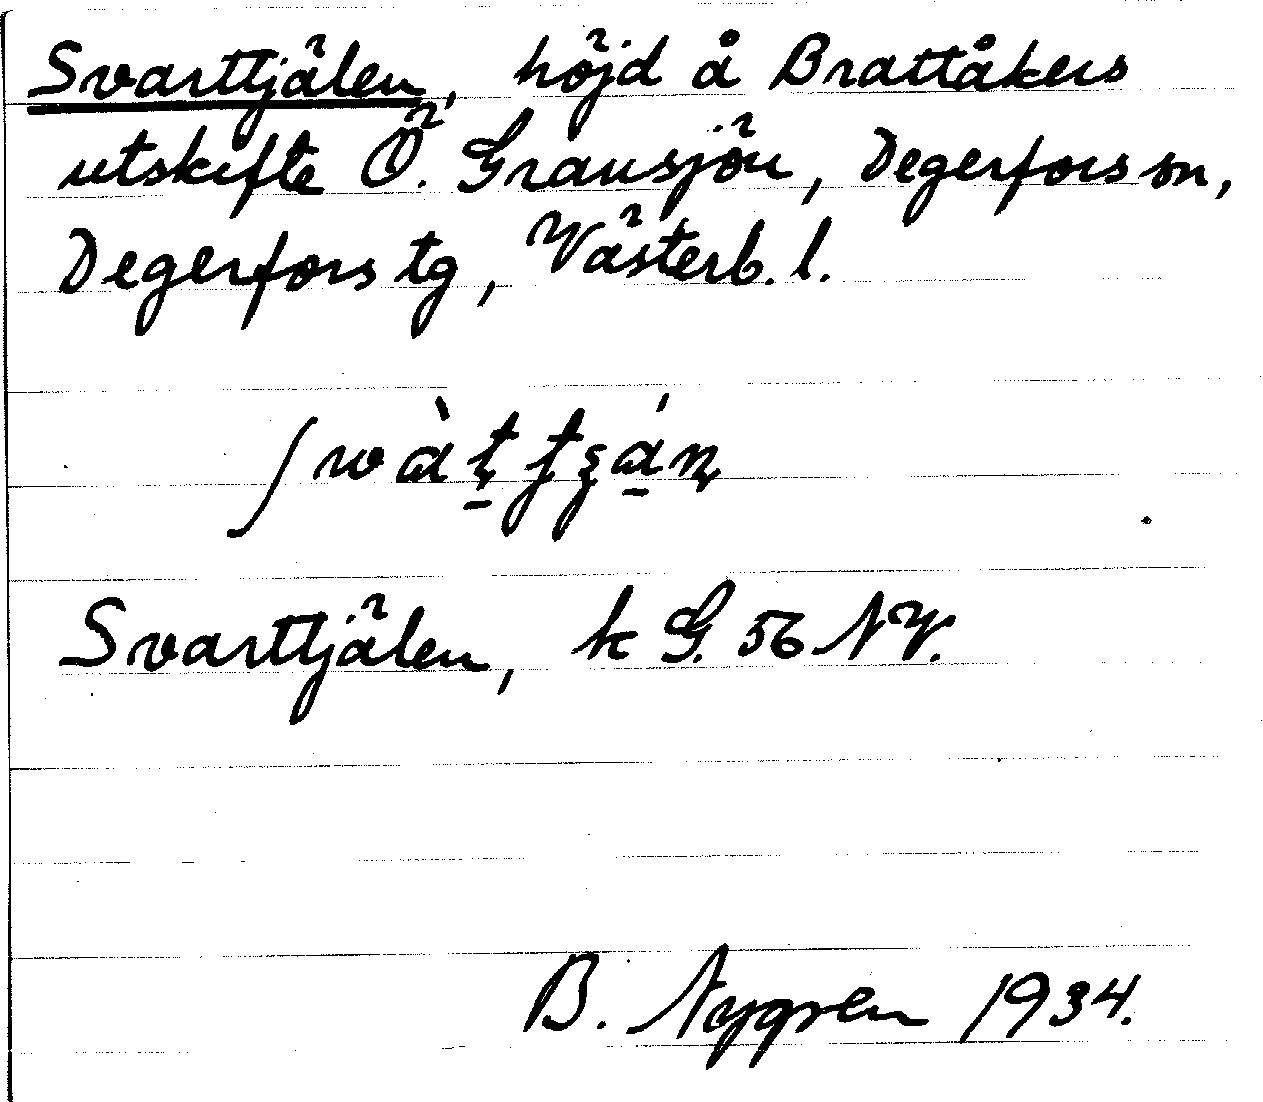 Svarttjälen, höjd å Brattåkers
utskifte Ö. Gransjön, Degerfors sn,
Degerfors tg, Västerb. l.
Svarttjälen, k G. 56 NV.
B. Nygren 1934.